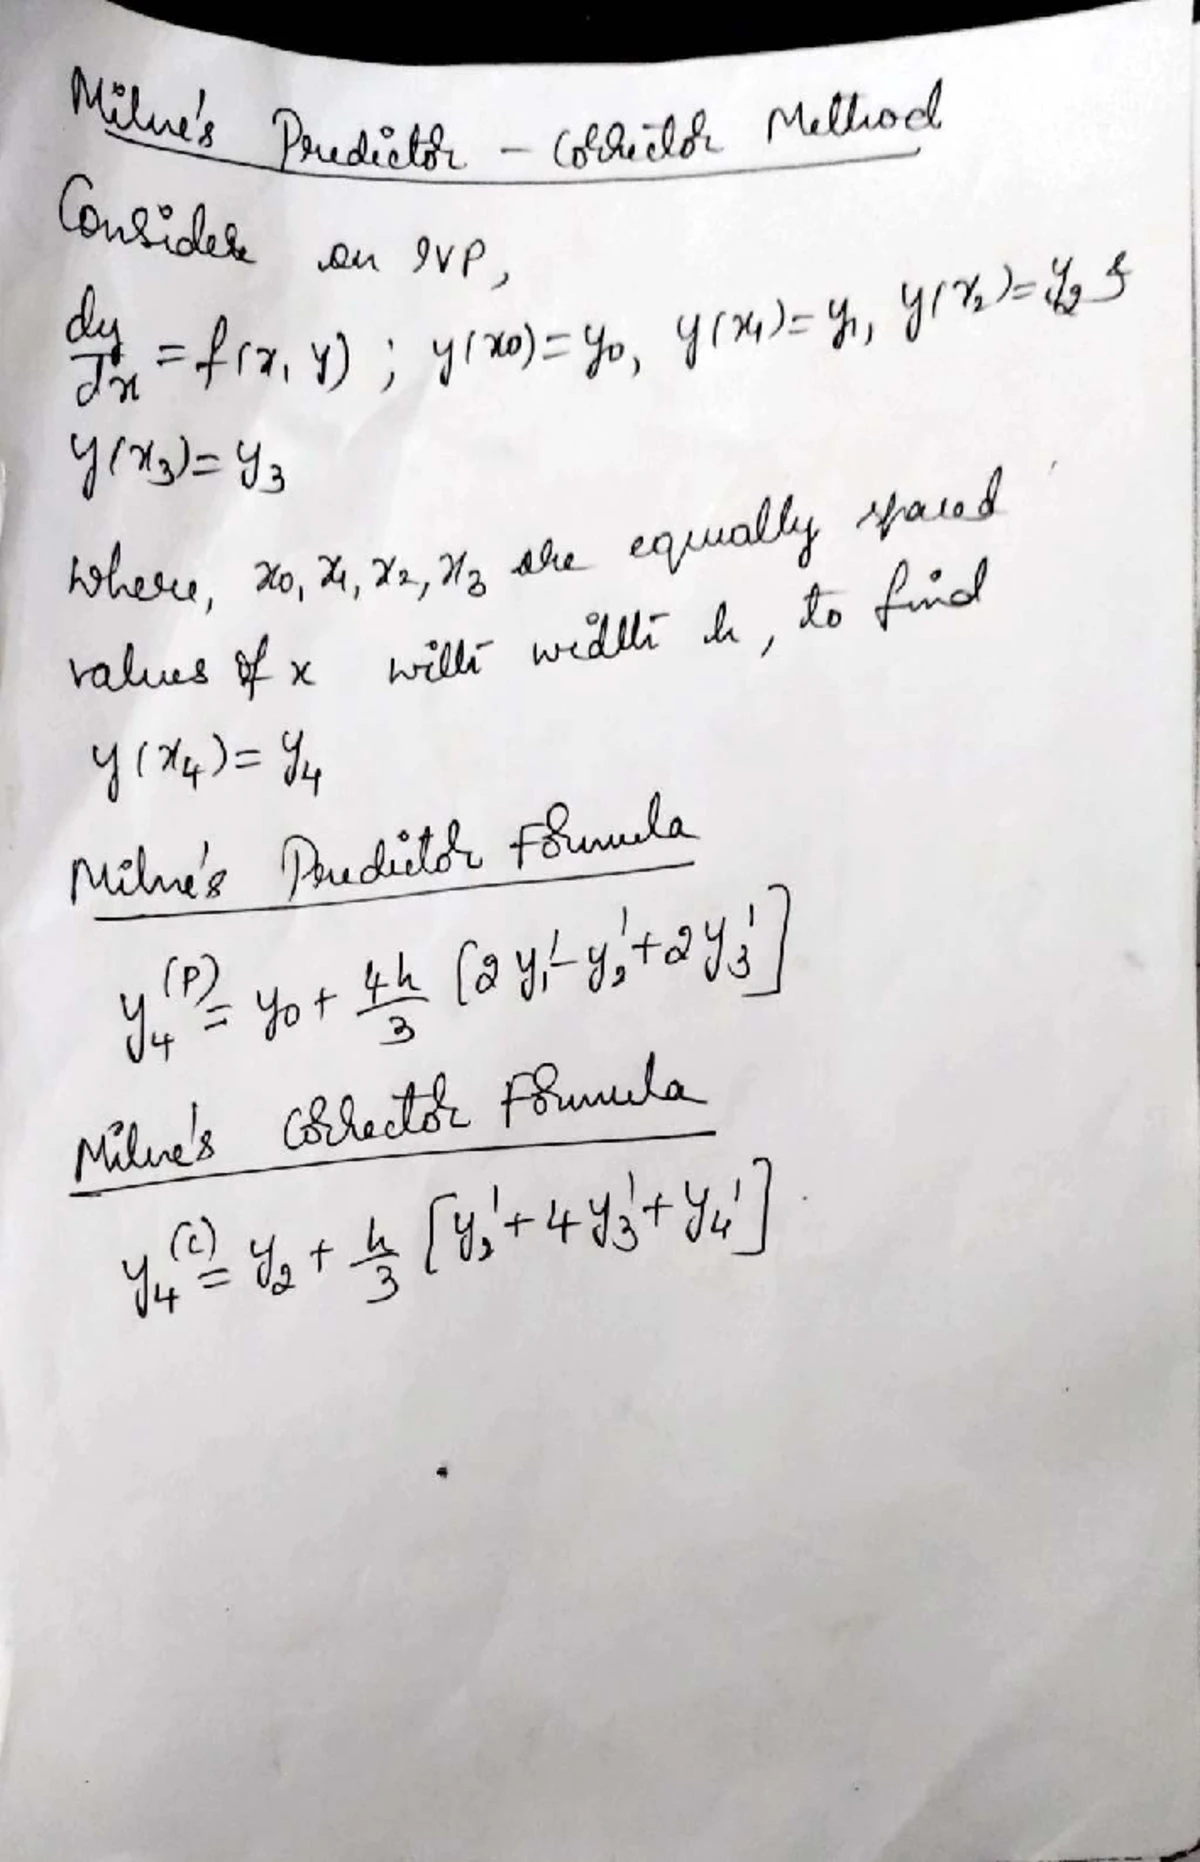 Milne's Predictor - Corrector Method
Consider an IVP,
dy/dx = f(x, y) ; y(x0) = y0, y(x1) = y1, y(x2) = y2 &
y(x3) = y3
where, x0, x1, x2, x3 are equally spaced
values of x with width h, to find
y(x4) = y4
Milne's Predictor Formula
y4^(P) = y0 + 4h/3 [2y1' - y2' + 2y3']
Milne's Corrector Formula
y4^(C) = y2 + h/3 [y2' + 4y3' + y4']